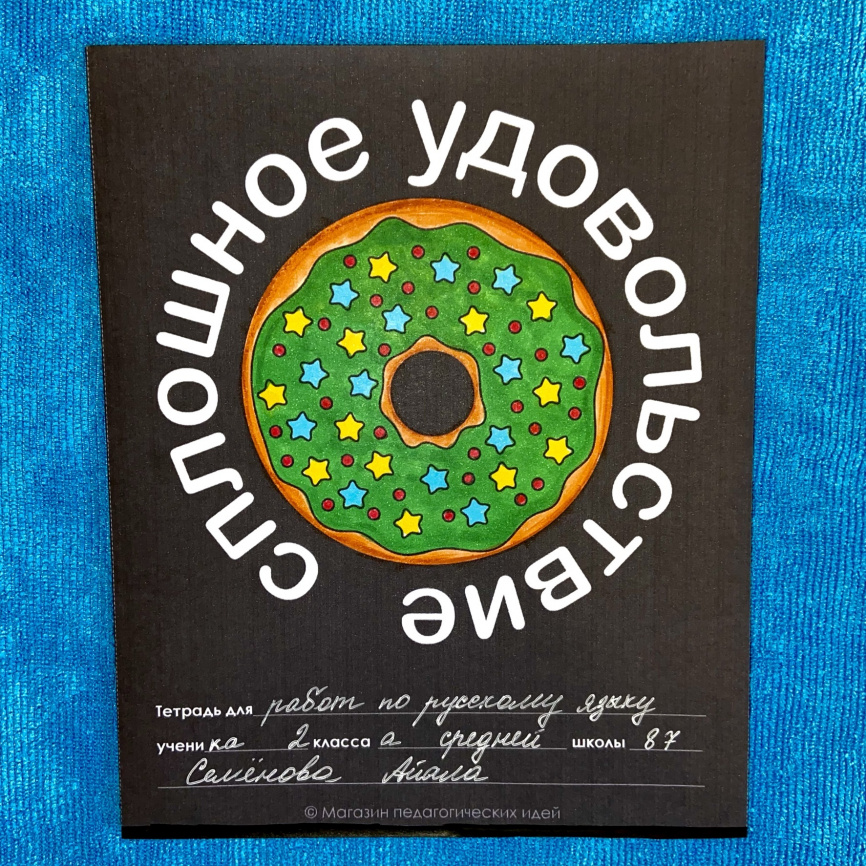 сплошное удовольствие
Тетрадь для работ по русскому языку
ученика 2 класса а средней школы 87
Семёнова Айяла
© Магазин педагогических идей